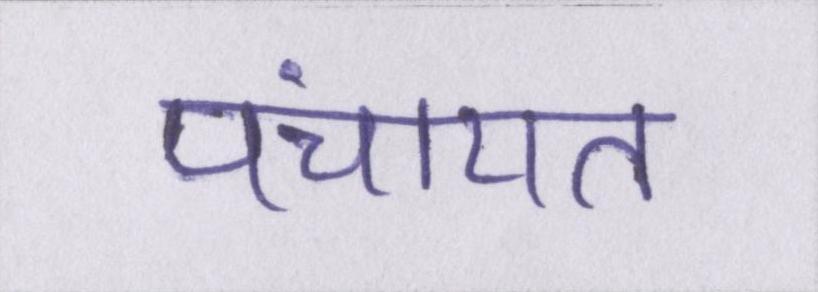 पंचायत